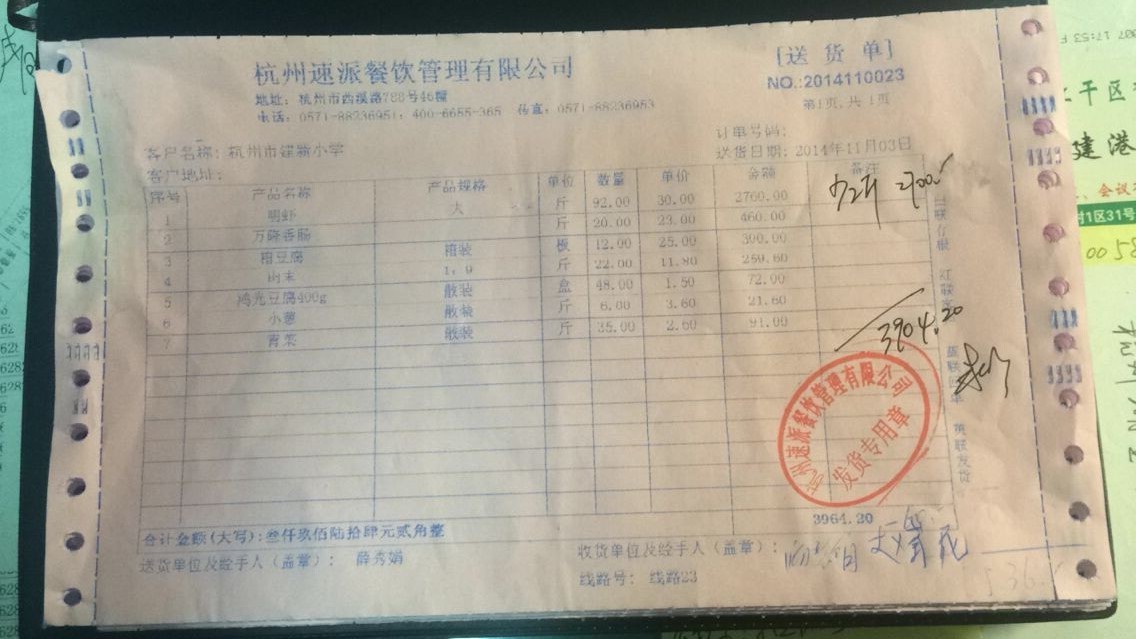 杭州速派餐饮管理有限公司
[送货单]
地址：杭州市西溪路788号46幢
NO.:2014110023
电话：0571-88236951；400-6655-365 传真：0571-88236953
第1页，共 1页
客户名称：杭州市建新小学
订单号码：
客户地址：
送货日期：2014年11月03日
序号 产品名称 产品规格 单位 数量 单价 金额 备注
1 明虾 大 斤 92.00 30.00 2760.00
2700
2 万隆香肠 斤 20.00 23.00 460.00
3 箱豆腐 箱装 板 12.00 25.00 300.00
4 肉末 斤 22.00 11.80 259.60
5 鸿光豆腐400g 散装 盒 48.00 1.50 72.00
6 小葱 散装 斤 6.00 3.60 21.60
7 青菜 散装 斤 35.00 2.60 91.00
3904.20
杭州速派餐饮管理有限公司
发货专用章
3964.20
合计金额(大写)：叁仟玖佰陆拾肆元贰角整
送货单位及经手人（盖章）： 薛秀娟
收货单位及经手人（盖章）：
线路号： 线路23
建港
会议
村1区31号
0058